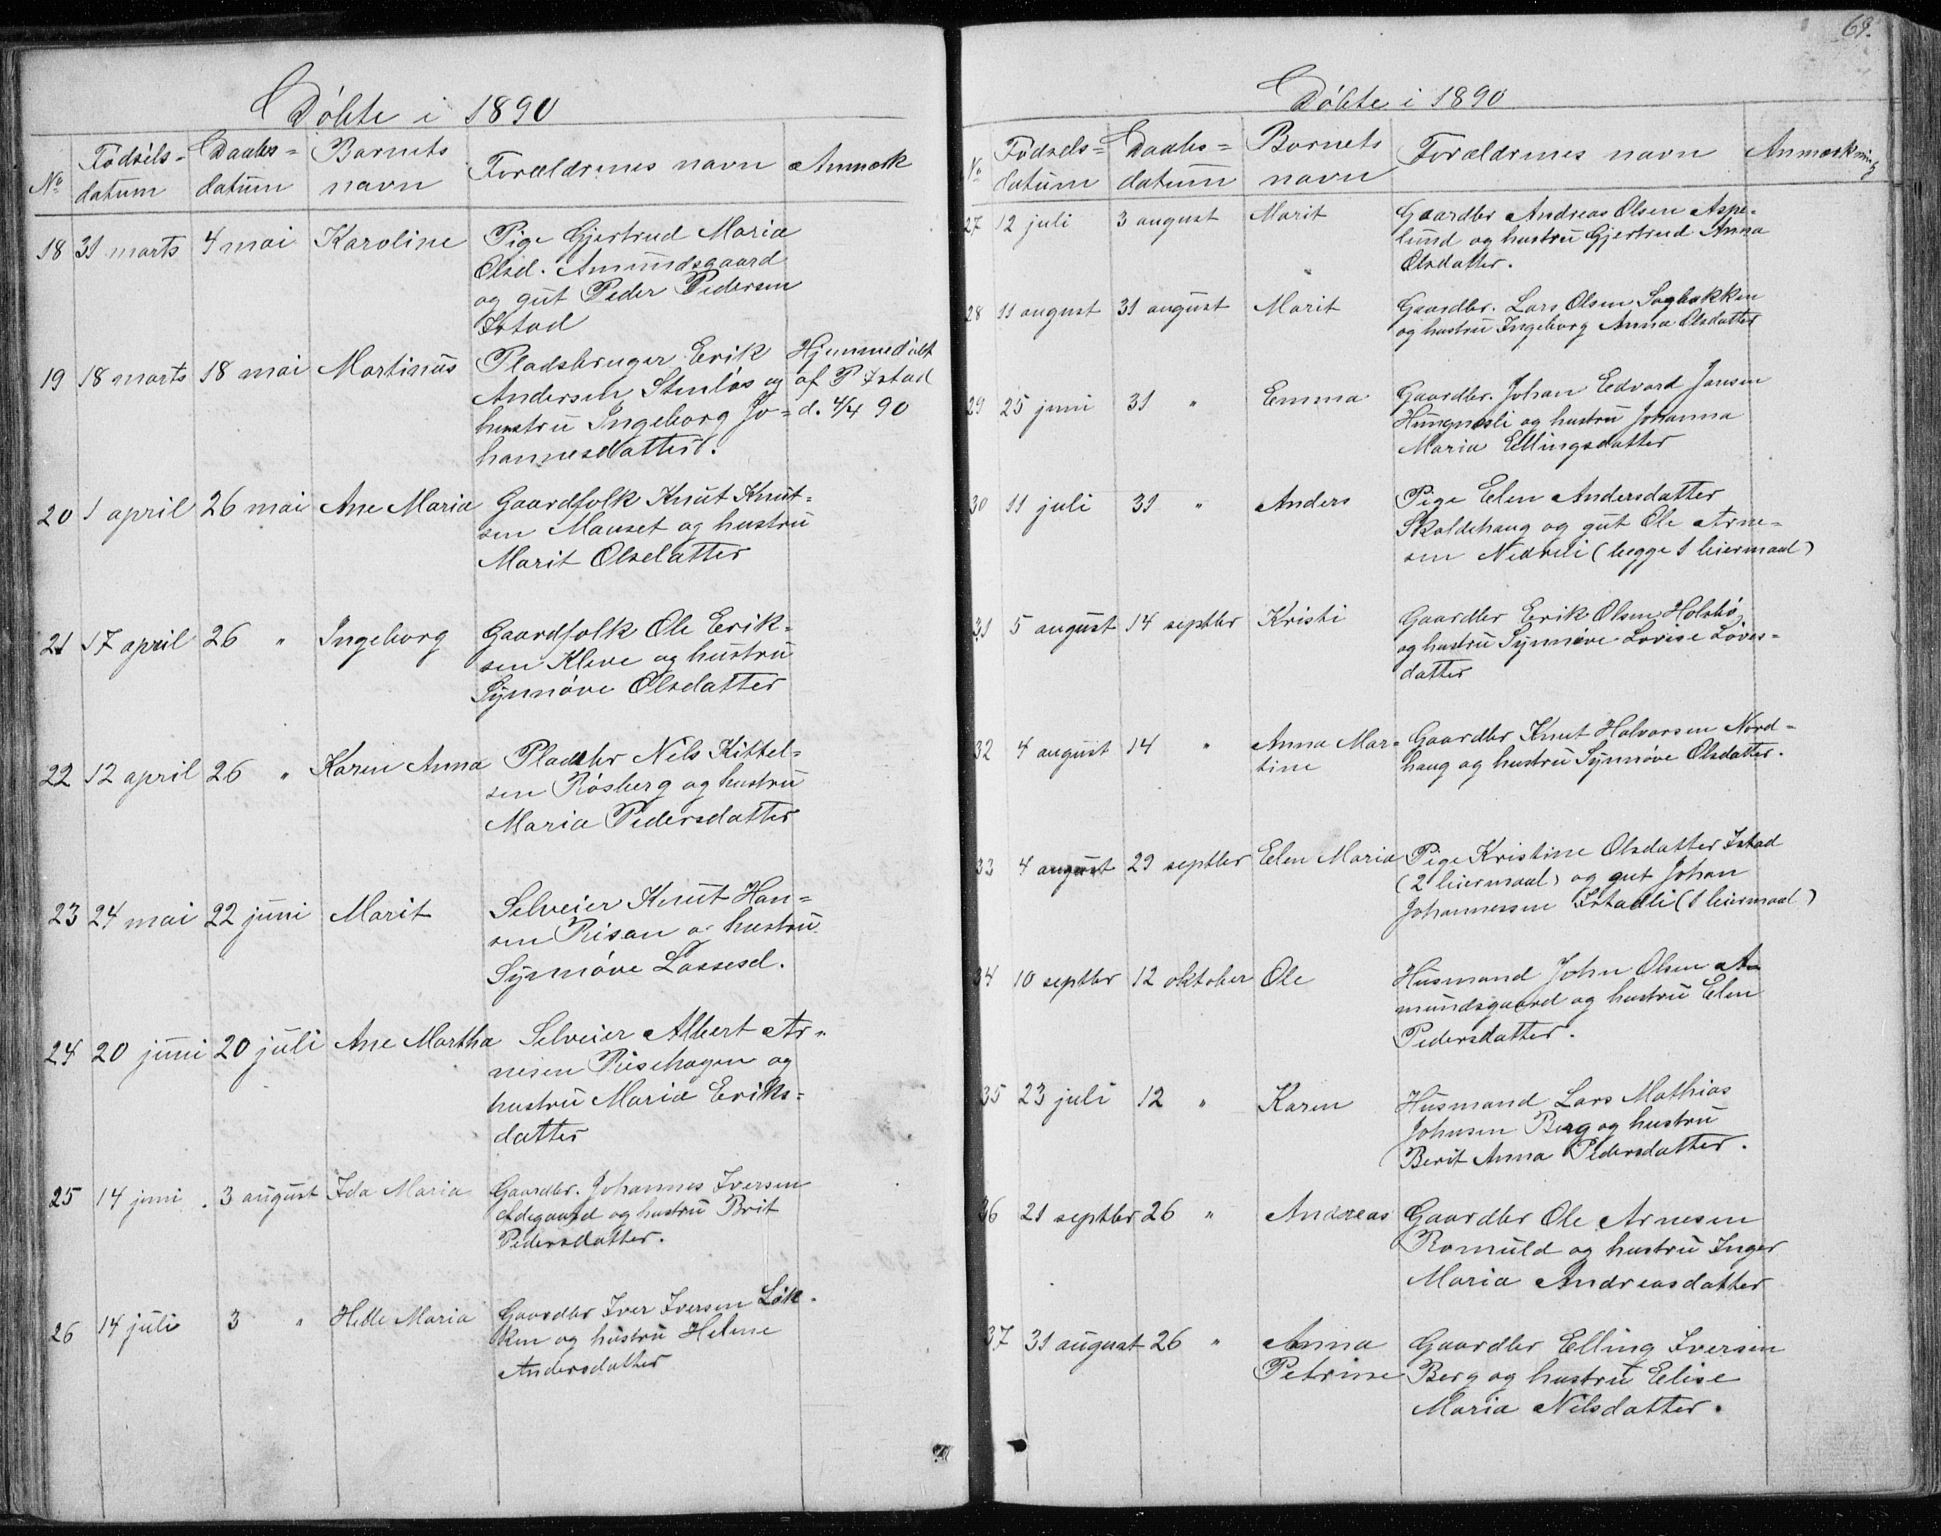 Døbte i 1890
No Fødsels-datum Daabs-datum Barnets navn Forældrenes navn Anmærk
18 31 marts 4 mai Karoline Pige Gjertrud Maria
Olsd. Amundsgaard
og gut Peder Pedersen
Istad
19 18 marts 18 mai Martinus Pladsbruger Erik Hjemmedøbt
Andersen Stenløs og af P Istad
hustru Ingeborg Jo- d. 4/4 90
hannesdatter.
20 1 april 26 mai Ane Maria Gaardfolk Knut Knut-
sen Mauset og hustru
Marit Olsdatter
21 17 april 26 " Ingeborg Gaardfolk Ole Erik-
sen Kleve og hustru
Synnøve Olsdatter
22 12 april 26 " Karen Anna Pladsbr Nils Kittel-
sen Røsberg og hustru
Maria Pedersdatter
23 24 mai 22 juni Marit Selveier Knut Han-
sen Risan o. hustru
Synnøve Lassesd.
24 20 juni 20 juli Ane Martha Selveier Albert Ar-
nesen Risehagen og
hustru Maria Eriks-
datter
25 14 juni . 3 august Ida Maria Gaardbr. Johannes Iversen
Ødegaard og hustru Brit
Pedersdatter.
26 14 juli 3 " Helle Maria Gaardbr Iver Iversen Løk-
ken og hustru Helene
Andersdatter
69.
Døbte i 1890
No Fødsels-datum Daabs-datum Barnets navn Forældrenes navn Anmærkning
27 12 juli 3 august Marit Gaardbr Andreas Olsen Aspe-
lund og hustru Gjertrud Anna
Olsdatter.
28 11 august 31 august Marit Gaardbr. Lars Olsen Sagbakken
og hustru Ingeborg Anna Olsdatter
29 25 juni 31 " Emma Gaardbr. Johan Edvard Jansen
Hungnesli og hustru Johanna
Maria Ellingsdatter
30 11 juli 31 " Anders Pige Elen Andersdatter
Skoldehaug og gut Ole Arne-
sen Nedreli (begge 1 leiermaal)
31 5 august 14 septbr Kristi Gaardbr Erik Olsen Holsbø
og hustru Synnøve Lovise Loves-
datter
32 4 august 14 " Anna Mar- Gaardbr Knut Halvorsen Nord-
tine haug og hustru Synnøve Olsdatter.
33 4 august 29 septbr Elen Maria Pige Kristine Olsdatter Istad
(2 leiermaal) og gut Johan
Johannessen Istadli (1 leiermaal)
34 10 septbr 12 oktober Ole Husmand John Olsen A-
mundsgaard og hustru Elen
Pedersdatter.
35 23 juli 12 " Karen Husmand Lars Mathias
Johnsen Berg og hustru
Berit Anna Pedersdatter.
36 21 septbr 26 " Andreas Gaardbr Ole Arnesen
Romuld og hustru Inger
Maria Andreasdatter
37 31 august 26 " Anna Gaardbr Elling Iversen
Petrine Berg og hustru Elise
Maria Nilsdatter.